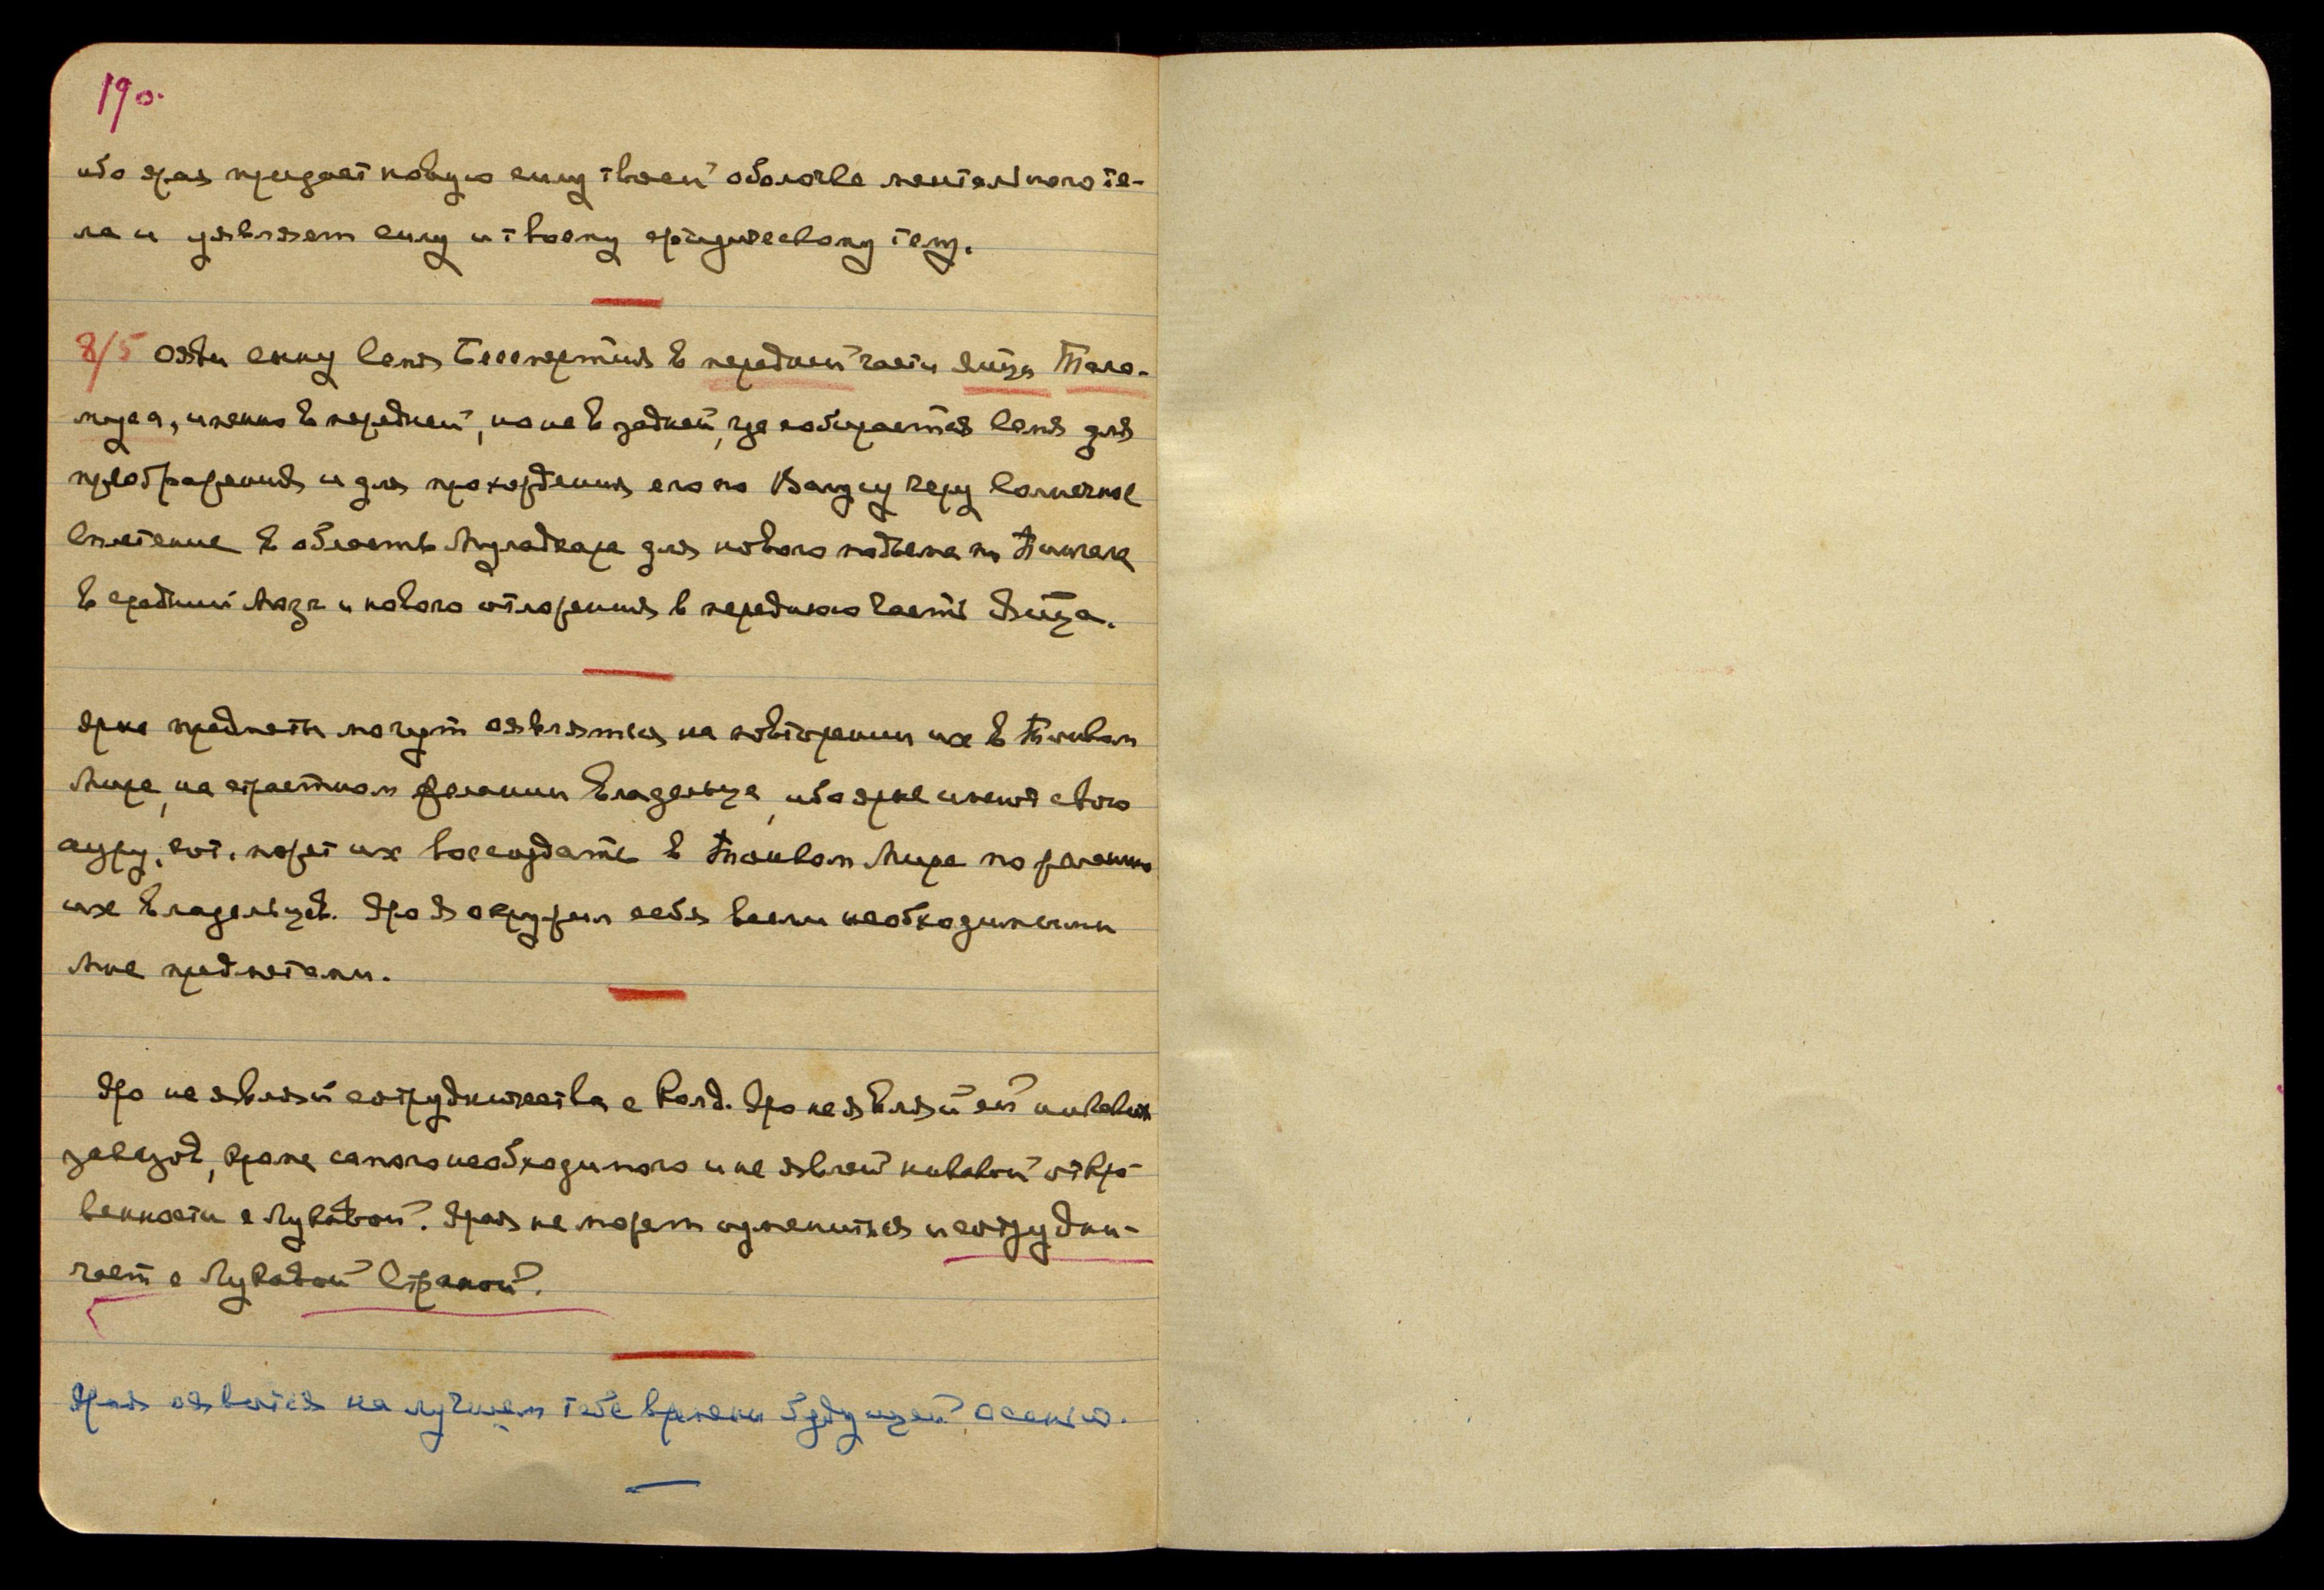 190.
ибо ярая придает новую силу твоей оболочке ментального те-
ла и уявляет силу и твоему физическому телу.
8/5 Ояви окну Семя Бессмертия в передней части яйца Тала-
муса, именно в передней, но не в задней, где собирается Семя для
преображения и для прохождения его по Вагусу через Солнечное
Сплетение в область Муладхара для нового подъема по
в средний Мозг и нового отложения в переднюю часть Яйца.
Ярые предметы могут оявляться на повторении их в Тонком
Мире, на страстном желании Владельца, ибо ярые имеют свою
ауру, кот. может их воссоздать в Тонком Мире по желанию
их Владельцев. Яро Я окружил себя всеми необходимыми
Мне предметами.
Яро не являй сотрудничества с Колд. Яро не являй ей никаких
кроме самого необходимого и не являй никакой откро-
венности с Лукавой. Ярая не может измениться и сотрудни-
чает с Лукавой Страной.
Ярая оявится на лучшем тебе времени будущей осенью.